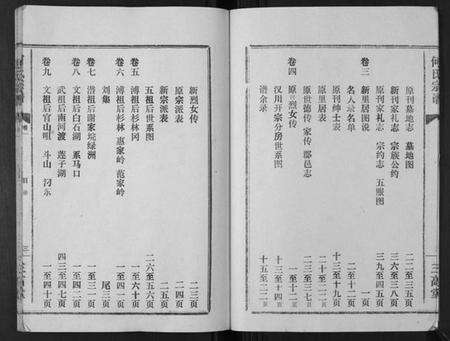 何氏宗谱
原刊墓地志 墓地图 二二至三五页
新刊家礼志 宗族公约 三六至三八页
原刊家礼志 宗约志 五服图 三九至四五页
卷三 新里居图说 一页
名人录名单 二至十二页
原刊绅士表 十三至十九页
原里居表 二十至二二页
原世德传 家传 郡邑志 二三至三七页
卷四 原刊烈女传 一至十二页
汉川开宗分房世系图 十三至十四页
谱余录 十五至二一页
三高堂
新烈女传 二三页
原宗派表 二四页
新宗派表 二五页
五祖后世系图 二六至五六页
卷五 溥祖后杉林冈 一至六十页
卷六 溥祖后杉林 惠家岭 范家岭 一至四一页
刘集 尾三页
卷七 潜祖后谢家垸绿洲 一至三一页
卷八 文祖后白石湖 系马口 一至四二页
武祖后南河渡 莲子湖 四三至四七页
卷九 文祖后官山咀 斗山 汈东 一至四十页
三高堂